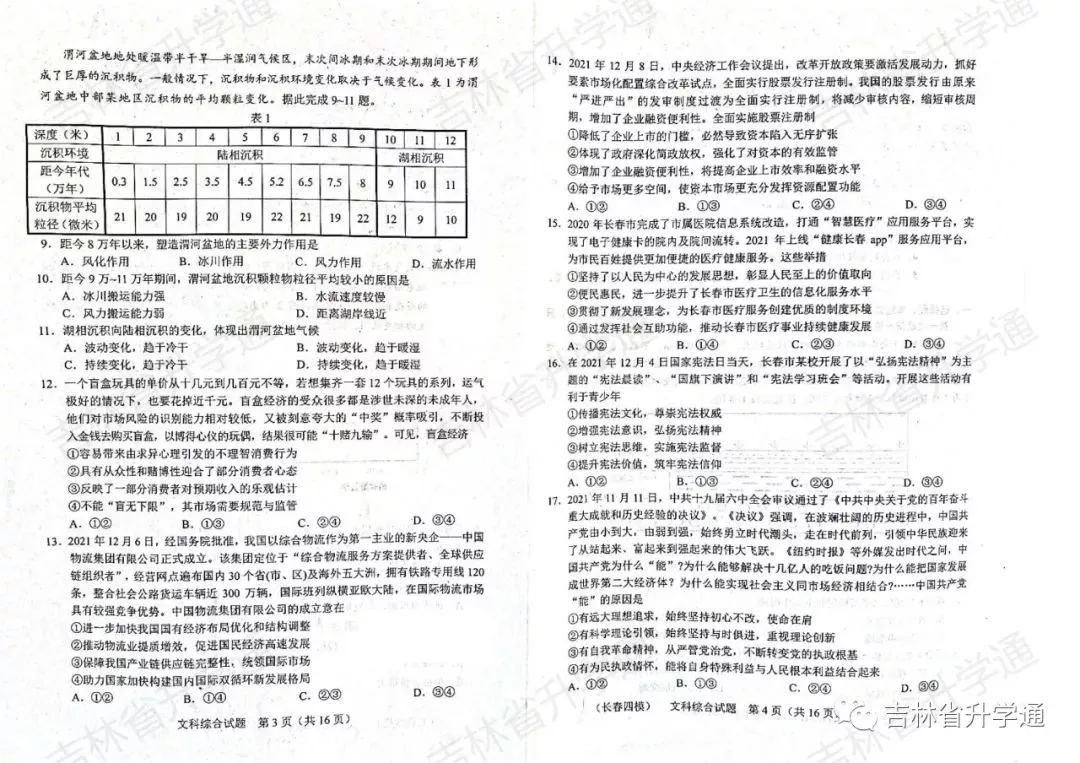 渭河盆地地处暖温带半干旱—半湿润气候区，末次间冰期和末次冰期期间地下形
成了巨厚的沉积物。一般情况下，沉积物和沉积环境变化取决于气候变化。表1为渭
河盆地中部某地区沉积物的平均颗粒变化。据此完成9~11题。
表1
深度（米） 1 2 3 4 5 6 7 8 9 10 11 12
沉积环境 陆相沉积 湖相沉积
距今年代（万年） 0.3 1.5 2.5 3.5 4.5 5.2 6.5 7.5 8 9 10 11
沉积物平均粒径（微米） 21 20 19 20 19 22 21 19 22 12 9 10
9．距今8万年以来，塑造渭河盆地的主要外力作用是
A．风化作用 B．冰川作用 C．风力作用 D．流水作用
10．距今9万~11万年期间，渭河盆地沉积颗粒物粒径平均较小的原因是
A．冰川搬运能力强 B．水流速度较慢
C．风力搬运能力弱 D．距离湖岸线近
11．湖相沉积向陆相沉积的变化，体现出渭河盆地气候
A．波动变化，趋于冷干 B．波动变化，趋于暖湿
C．持续变化，趋于冷干 D．持续变化，趋于暖湿
12．一个盲盒玩具的单价从十几元到几百元不等，若想集齐一套12个玩具的系列，运气
极好的情况下，也要花掉近千元。盲盒经济的受众很多都是涉世未深的未成年人，
他们对市场风险的识别能力相对较低，又被刻意夸大的“中奖”概率吸引，不断投
入金钱去购买盲盒，以博得心仪的玩偶，结果很可能“十赌九输”。可见，盲盒经济
①容易带来由求异心理引发的不理智消费行为
②具有从众性和赌博性迎合了部分消费者心态
③反映了一部分消费者对预期收入的乐观估计
④不能“盲无下限”，其市场需要规范与监管
A．①② B．①③ C．②④ D．③④
13．2021年12月6日，经国务院批准，我国以综合物流作为第一主业的新央企——中国
物流集团有限公司正式成立。该集团定位于“综合物流服务方案提供者、全球供应
链组织者”，经营网点遍布国内30个省(市、区)及海外五大洲，拥有铁路专用线120
条，整合社会公路货运车辆近300万辆，国际班列纵横亚欧大陆，在国际物流市场
具有较强竞争优势。中国物流集团有限公司的成立意在
①进一步加快我国国有经济布局优化和结构调整
②推动物流业提质增效，促进国民经济高速发展
③保障我国产业链供应链完整性，统领国际市场
④助力国家加快构建国内国际双循环新发展格局
A．①② B．①④ C．②③ D．③④
文科综合试题 第3页（共16页）
14．2021年12月8日，中央经济工作会议提出，改革开放政策要激活发展动力，抓好
要素市场化配置综合改革试点，全面实行股票发行注册制。我国的股票发行由原来
“严进严出”的发审制度过渡为全面实行注册制，将减少审核内容，缩短审核周
期，增加了企业融资便利性。全面实施股票注册制
①降低了企业上市的门槛，必然导致资本陷入无序扩张
②体现了政府深化简政放权，强化了对资本的有效监管
③增加了企业融资便利性，将提高企业上市效率和融资水平
④给予市场更多空间，使资本市场更充分发挥资源配置功能
A．①② B．①③ C．②④ D．③④
15．2020年长春市完成了市属医院信息系统改造，打通“智慧医疗”应用服务平台，实
现了电子健康卡的院内及院间流转。2021年上线“健康长春app”服务应用平台，
为市民百姓提供更加便捷的医疗健康服务。这些举措
①坚持了以人民为中心的发展思想，彰显人民至上的价值取向
②便民惠民，进一步提升了长春市医疗卫生的信息化服务水平
③贯彻了新发展理念，为长春市医疗服务创建优质的制度环境
④通过发挥社会互助功能，推动长春市医疗事业持续健康发展
A．①② B．①④ C．②③ D．③④
16．在2021年12月4日国家宪法日当天，长春市某校开展了以“弘扬宪法精神”为主
题的“宪法晨读”、“国旗下演讲”和“宪法学习班会”等活动。开展这些活动有
利于青少年
①传播宪法文化，尊崇宪法权威
②增强宪法意识，弘扬宪法精神
③树立宪法思维，实施宪法监督
④提升宪法价值，筑牢宪法信仰
A．①② B．①③ C．②④ D．③④
17．2021年11月11日，中共十九届六中全会审议通过了《中共中央关于党的百年奋斗
重大成就和历史经验的决议》。《决议》强调，在波澜壮阔的历史进程中，中国共
产党由小到大，由弱到强，始终勇立时代潮头，走在时代前列，引领中华民族迎来
了从站起来、富起来到强起来的伟大飞跃。《纽约时报》等外媒发出时代之问，中
国共产党为什么“能”？为什么能够解决十几亿人的吃饭问题?为什么能把国家发展
成世界第二大经济体？为什么能实现社会主义同市场经济相结合?……中国共产党
“能”的原因是
①有远大理想追求，始终坚持初心不改，使命在肩
②有科学理论引领，始终坚持与时俱进，重视理论创新
③有自我革命精神，从严管党治党，不断转变党的执政根基
④有为民执政情怀，能将自身特殊利益与人民根本利益结合起来
A．①② B．①③ C．②④ D．③④
（长春四模） 文科综合试题 第4页（共16页）
吉林省升学通